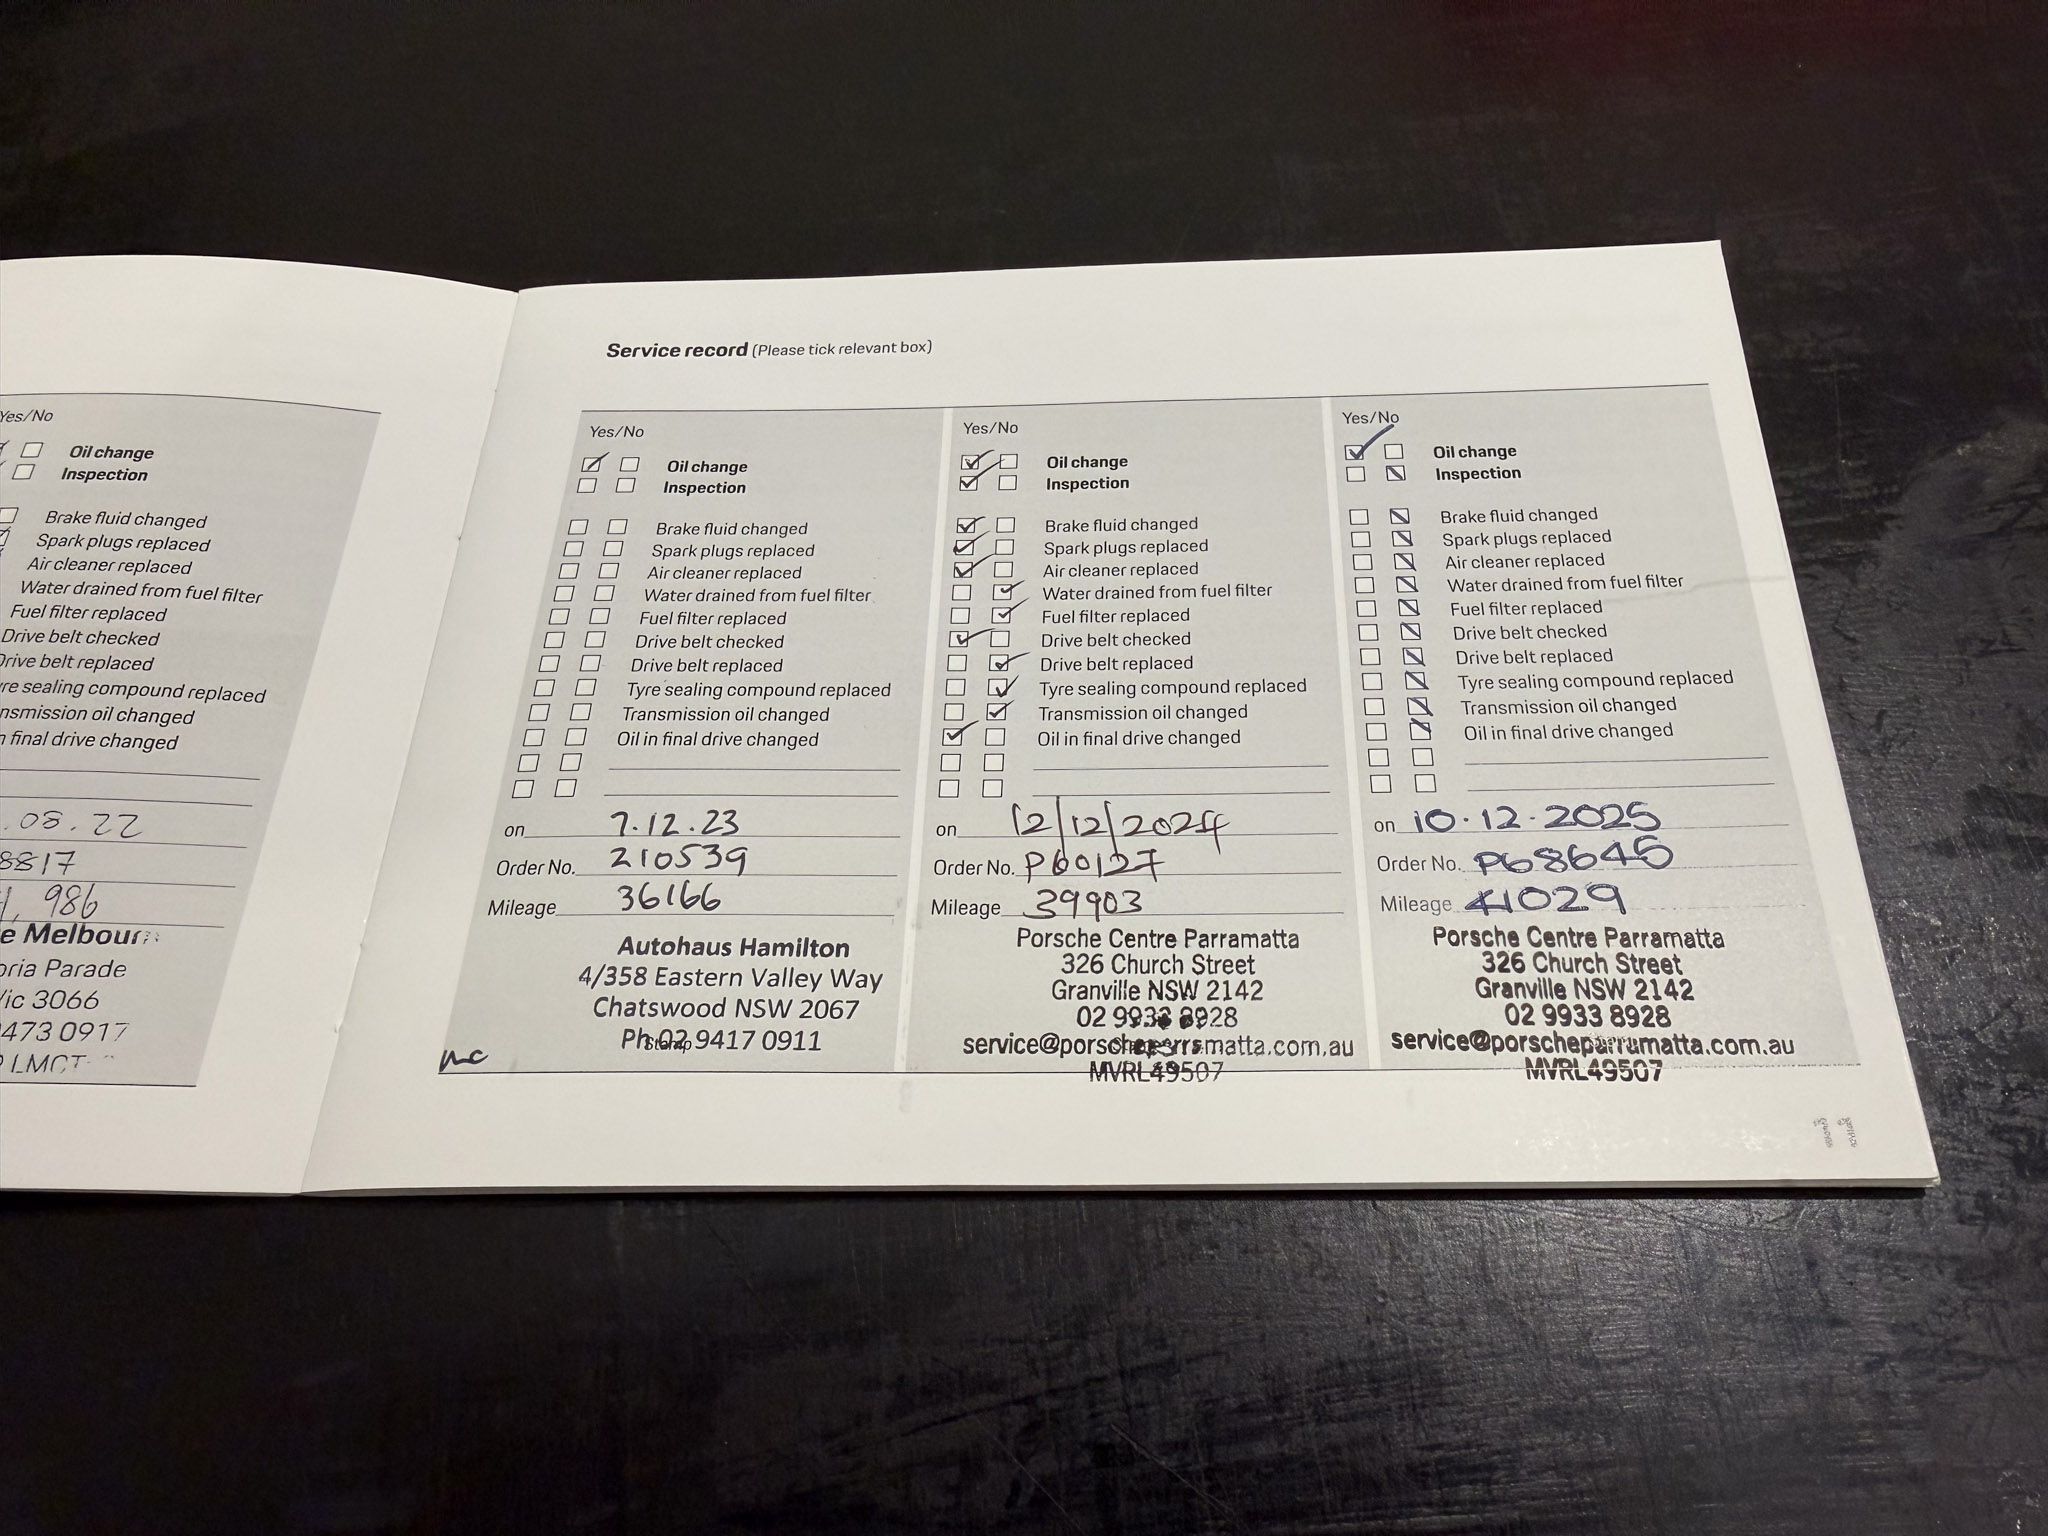 Yes/No
Oil change
Inspection
Brake fluid changed
Spark plugs replaced
Air cleaner replaced
Water drained from fuel filter
Fuel filter replaced
Drive belt checked
Drive belt replaced
sealing compound replaced
oil changed
final drive changed
.08.22
8817
986
Parade
3066
473 0917
LMCT
Service record (Please tick relevant box)
Yes/No
Oil change
Inspection
Brake fluid changed
Spark plugs replaced
Air cleaner replaced
Water drained from fuel filter
Fuel filter replaced
Drive belt checked
Drive belt replaced
Tyre sealing compound replaced
Transmission oil changed
Oil in final drive changed
on 7.12.23
Order No. 210539
Mileage 36166
Autohaus Hamilton
4/358 Eastern Valley Way
Chatswood NSW 2067
Ph 02 9417 0911
Stamp
Yes/No
Oil change
Inspection
Brake fluid changed
Spark plugs replaced
Air cleaner replaced
Water drained from fuel filter
Fuel filter replaced
Drive belt checked
Drive belt replaced
Tyre sealing compound replaced
Transmission oil changed
Oil in final drive changed
on 12/12/2024
Order No. P60127
Mileage 39903
Porsche Centre Parramatta
326 Church Street
Granville NSW 2142
02 9933 8928
service@porscheparramatta.com.au
MVRL49507
Yes/No
Oil change
Inspection
Brake fluid changed
Spark plugs replaced
Air cleaner replaced
Water drained from fuel filter
Fuel filter replaced
Drive belt checked
Drive belt replaced
Tyre sealing compound replaced
Transmission oil changed
Oil in final drive changed
on 10.12.2025
Order No. P68645
Mileage 41029
Porsche Centre Parramatta
326 Church Street
Granville NSW 2142
02 9933 8928
service@porscheparramatta.com.au
MVRL49507
11